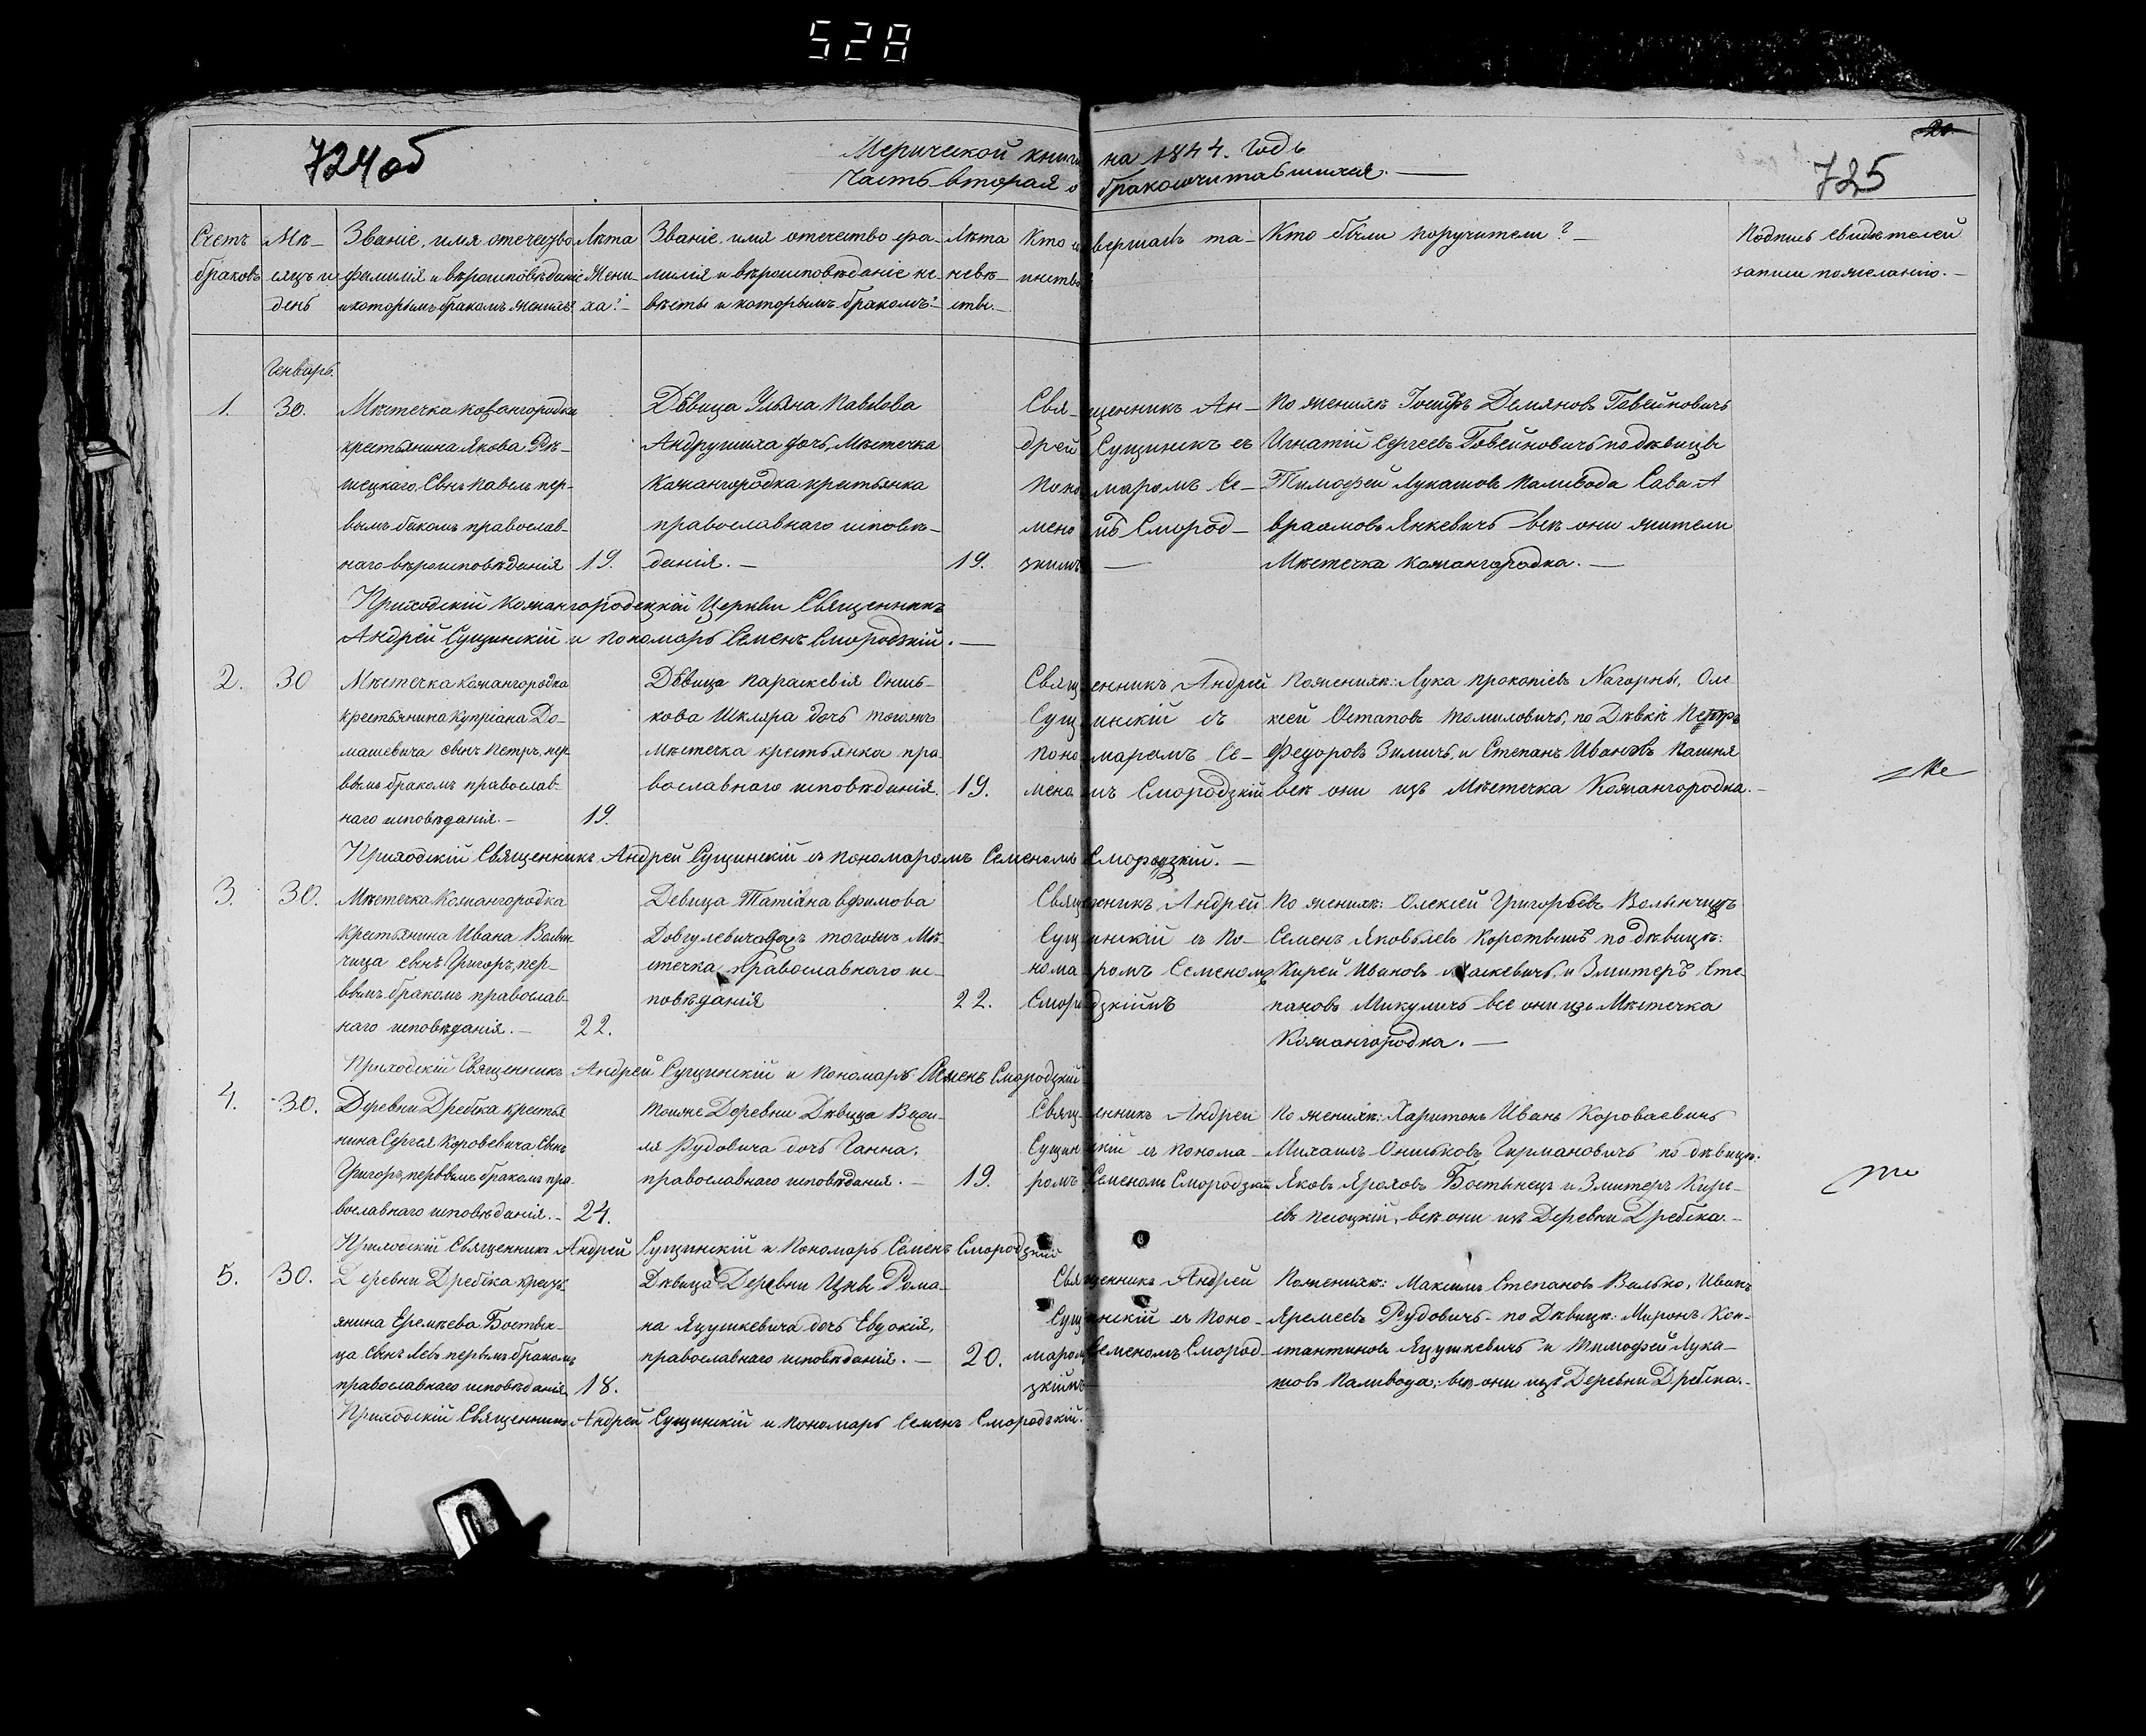 528
724об
Мерической книги на 1844. Годъ
Часть вторая о бракосочитавшихся.
20
725
Счетъ браковъ
Мѣ-
сяцъ и
день
Званіе, имя отечество
фамилія и вѣроисповѣданіе
и которымъ бракомъ женихъ?
Лѣта
Жени-
ха?
Званіе, имя отечество фа-
милія и вѣроисповѣданіе не-
вѣсты и которымъ бракомъ?
Лѣта
невѣ-
сты.
Кто совершалъ та-
инство?
Кто были поручители?
Подпись свидѣтелей
записи по желанію.
Генварь.
1.
30.
Мѣстечка Кожангородка
крестьянина Якова Рѣ-
шецкаго. Сынъ Павелъ пер-
вымъ бракомъ православ-
наго вѣроисповѣданія
19.
Дѣвица Ульяна Павлова
Андрушиха дочь Мѣстечка
Кожангородка крестьянка
православнаго исповѣ-
данія.
19.
Священникъ Ан-
дрей Сущинскъ съ
Пономаромъ Се-
меномъ Смород-
зкимъ
По женихѣ Іосифъ Демяновъ Гавейновичъ
Игнатій Сергеевъ Говейновичъ по дѣвицы
Тимофей Лукашовъ Паливода Сава А
враамовъ Янкевичъ всѣ они жители
Мѣстечка Кожангородка.
Приходскій Кожангородецкій Церкви Священникъ
Андрей Сущинскій и пономаръ Семенъ Смородзкій.
2.
30
Мѣстечка Кожангородка
крестьянина Купріана До-
машевича сынъ Петръ, пер
вымъ бракомъ православ-
наго исповѣданія.
19.
Дѣвица Параскевія Онись-
кова Шкляра дочь тогожъ
Мѣстечка крестьянка пра-
вославнаго исповѣданія.
19.
Священникъ Андрей
Сущинскій съ
Пономаромъ Се-
меномъ Смородзкій
По женихѣ: Лука Прокопіевъ Нагорны, Оле
ксей Остаповъ Томиловичъ, по Дѣвкѣ Петръ
Федоровъ Зимичъ, и Степанъ Ивановъ Пашня
всѣ они изъ Мѣстечка Кожангородка.
Приходскій Священникъ Андрей Сущинскій съ пономаромъ Семеномъ Смородзкій.
3.
30.
Мѣстечка Кожангородка
Крестьянина Ивана Волын
чица сынъ Григоръ, пер-
вымъ бракомъ православ-
наго исповѣданія.
22.
Девица Татіана
Довгулевича тогожъ Мѣ-
стечка православнаго ис-
повѣданія
22.
Священникъ Андрей
Сущинскій съ По-
номаромъ Семеномъ
Смородзкіимъ
По женихѣ: Олексей Григорьевъ Волынчицъ
Семенъ Яковлевъ Коротышъ по дѣвицѣ:
Кирей Ивановъ и Змитеръ Сте
пановъ Микуличъ все они изъ Мѣстечка
Кожангородка.
Приходскій Священникъ Андрей Сущинскій и Пономаръ Семенъ Смородзкій
4.
30.
Деревни Дребска крестья
нина Сергея Коровевича Сынъ
Григоръ, первымъ бракомъ пра-
вославнаго исповѣданія.
24.
Тояже Деревни Дѣвица Васи-
ля Рудовича дочь Ганна.
православнаго исповѣданія.
19.
Священникъ Андрей
Сущинскій съ понома-
ромъ Семеномъ Смородзкій
По женихѣ: Харитонъ Иванъ Короваевичъ
Михаилъ Ониськовъ Германовичъ по дѣвицѣ:
Яковъ Бостынецъ и Змитеръ Кире-
евъ Песоцкій, всѣ они изъ Деревни Дребска.
Приходскій Священникъ Андрей Сущинскій и Пономаръ Семенъ Смородзкій
5.
30.
Деревни Дребска крестъ-
янина Еремѣева Бостын-
ца Сынъ Левъ первымъ бракомъ
православнаго исповѣданія
18.
Дѣвица Деревни Цны Рома-
на Яцушкевича дочь Евдокія,
православнаго исповѣданія.
20.
Священникъ Андрей
Сущинскій съ Поно-
маромъ Семеномъ Смород-
зкіимъ
По женихѣ: Максимъ Степановъ Валько, Иванъ
Яремеевъ Рудовичъ - по Дѣвицѣ: Миронъ Кон-
стантиновъ Яцушкевичъ и Тимофей Лука-
шовъ Паливода; всѣ они изъ Деревни Дребска.
Приходскій Священникъ Андрей Сущинскій и пономаръ Семенъ Смородзкій.